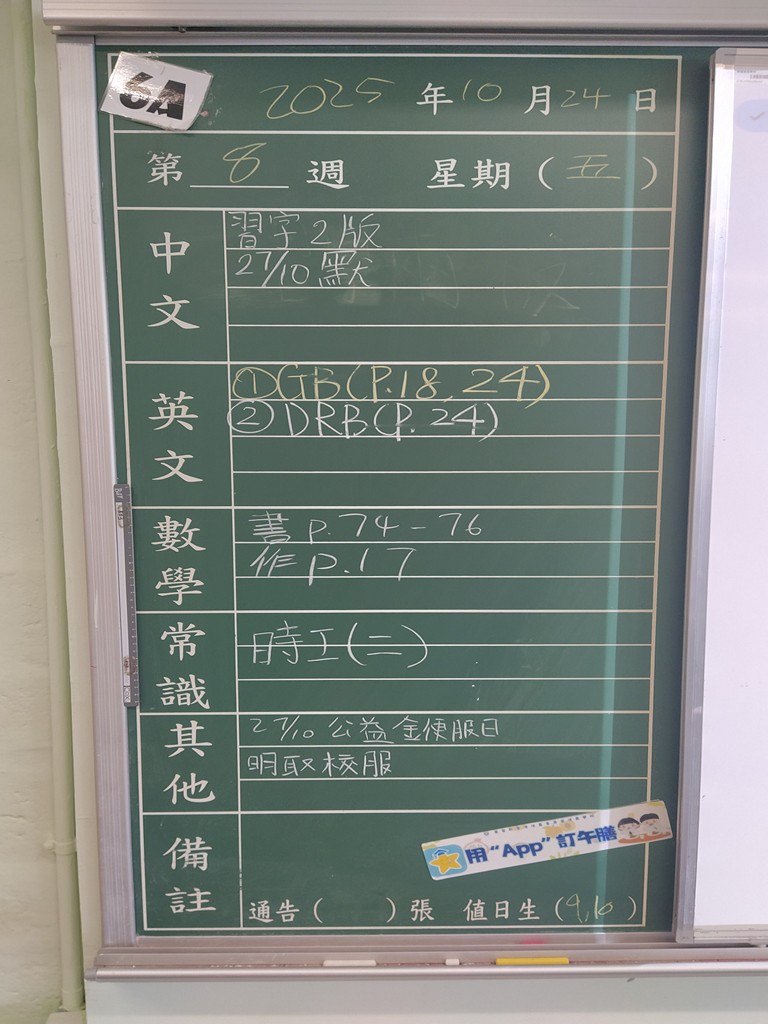 6A
2025 年 10 月 24 日
第 8 週 星期 (五)
中文
習字2版
27/10 默
英文
①GB(P.18, 24)
②DRB(P. 24)
數學
書 p. 74 - 76
作 p. 17
常識
時工(二)
其他
27/10 公益金便服日
明取校服
備註
用“App”訂午膳
通告 ( ) 張 值日生 (9,10)